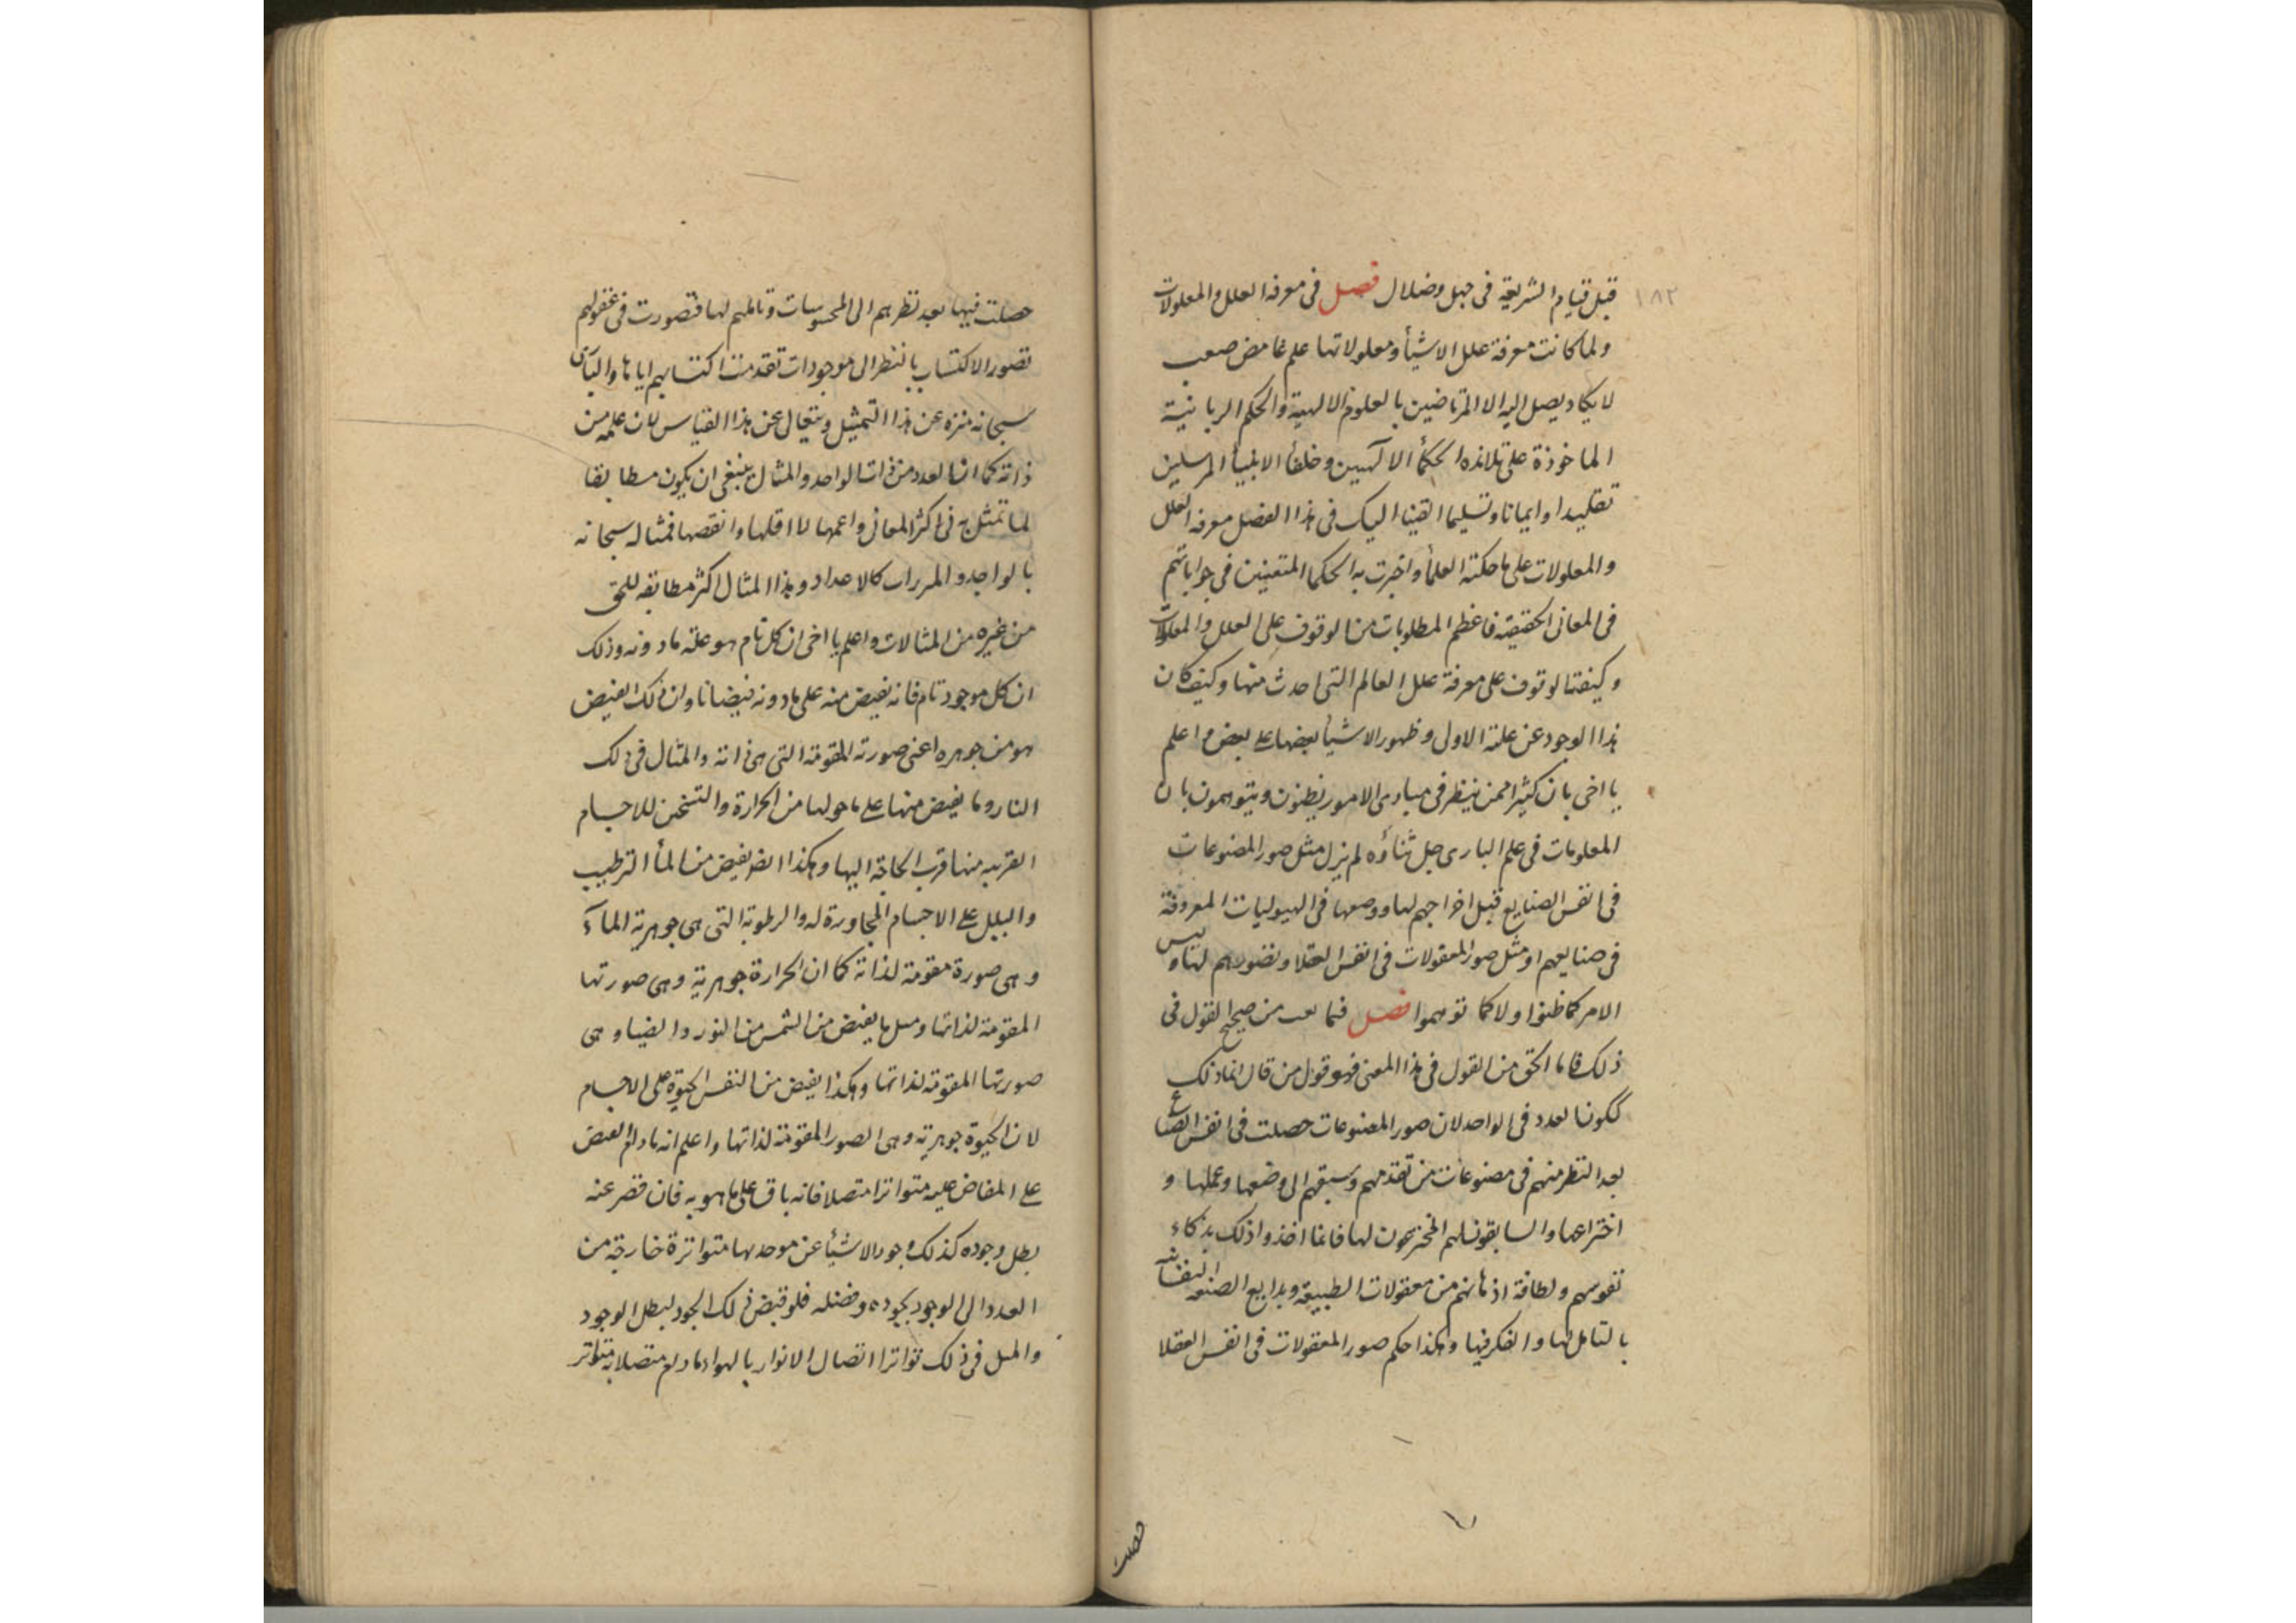 ١٨٢
قبل قيام الشريعة فى جهل وضلال فصل فى معرفه العلل والمعلولات
ولما كانت معرفة علل الاشيأ ومعلولاتها علم غامض صعب
لا يكاد يصل اليه الا المرتاضين بالعلوم الالهية والحكم الربانية
الماخوذة على تلامذه الحكمأ الالهيين وخلفأ الانبيأ المرسلين
تقليدا وايمانا وتسليما القينا اليك فى هذا الفصل معرفه العلل
والمعلولات على ما حكته العلمأ واخبرت به الحكما المتقنين فى جواباتهم
فى المعانى الحقيقيه فاعظم المطلوبات من الوقوف على العلل والمعلولات
وكيفة الوقوف على معرفة علل العالم التى احدث منها وكيف كان
هذا الوجود عن علته الاولى وظهور الاشيأ بعضها على بعض واعلم
يا اخى بان كثيرا ممن ينظر فى مبادى الامور يظنون ويتوهمون بان
المعلومات فى علم البارى جل ثناؤه لم يزل مثل صور المصنوعات
فى انفس الصنايع قبل اخراجهم لها ووضعها فى الهيوليات المعروفة
فى صنايعهم او مثل صور المعقولات فى انفس العقلا وتصورهم لها وليس
الامر كما ظنوا ولا كما توهموا فصل فيما من صحيح القول فى
ذلك فاما الحق من القول فى هذا المعنى فهو قول من قال انما ذلك
ككون العدد فى الواحد لان صور المصنوعات حصلت فى انفس الصناع
بعد النظر منهم فى مصنوعات من تقدمهم وسبقهم الى وضعها وعملها و
اختراعها والسابقون هم المخترعون لها فانما اخذوا ذلك بذكاء
نفوسهم ولطافة اذهانهم من معقولات الطبيعة وبدايع الصنعه النفسانيه
بالتامل لها والفكر فيها وهكذا حكم صور المعقولات فى انفس العقلا
حصلت
حصلت فيها بعد نظرهم الى المحسوسات وتاملهم لها فتصورت فى عقولهم
تصور الاكتساب بالنظر الى موجودات تقدمت اكتسابهم اياها والبارى
سبحانه منزه عن هذا التمثيل ويتعالى عن هذا القياس لان علمه من
ذاته كما ان العدد من ذات الواحد والمثال ينبغى ان يكون مطابقا
لما تمثل به فى اكثر المعانى واعمها لا اقلها وانقصها فمثاله سبحانه
بالواحد و كالاعداد وهذا المثال اكثر مطابقه للحق
من غيره من المثالات واعلم يا اخى ان كل تام هو علة ما دونه وذلك
ان كل موجود تام فانه يفيض منه على ما دونه فيضا نا وان ذلك الفيض
هو من جوهره اعنى صورته المقومة التى هى ذاته والمثال فى ذلك
النار وما يفيض منها على ما حولها من الحرارة والتسخن للاجسام
القريبه منها قرب الحاجة اليها وهكذا ايض يفيض من المأ الترطيب
والبلل على الاجسام المجاورة له والرطوبة التى هى جوهرية المآء
وهى صورة مقومة لذاته كما ان الحرارة جوهرية وهى صورتها
المقومة لذاتها ومثل ما يفيض من الشمس من النور والضيا وهى
صورتها المقومة لذاتها وهكذا يفيض من النفس الحيوة على الاجسام
لان الحيوة جوهرية وهى الصور المقومة لذاتها واعلم انه ما دام الفيض
على المفاض عليه متواترا متصلا فانه باق على ما هو به فان قصر عنه
بطل وجوده كذلك وجود الاشيأ عن موحدها متواترة خارجة من
العدد الى الوجود بجوده وفضله فلو قبض ذلك الجود لبطل الوجود
والمثل فى ذلك تواترا اتصال الانوار بالهواء ما دام متصلا به متواتر